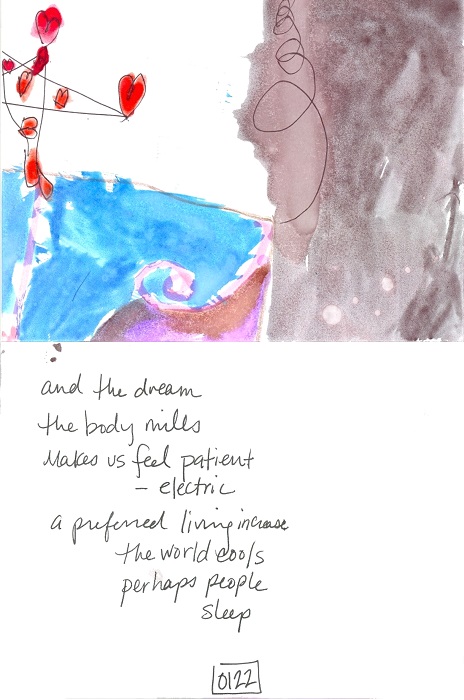 and the dream
the body mills
makes us feel patient
– electric
a preferred living increase
the world cools
perhaps people
sleep
0122